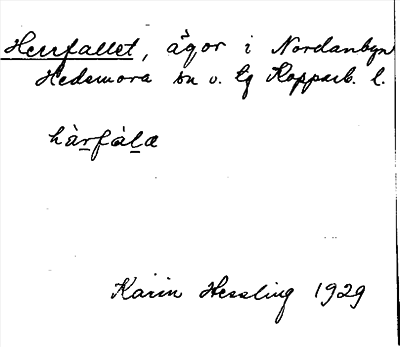 Herrfallet, ägor i Nordanbyn
Hedemora sn o. tg Kopparb. l.
hàrfàlæ
Karin Hessling 1929